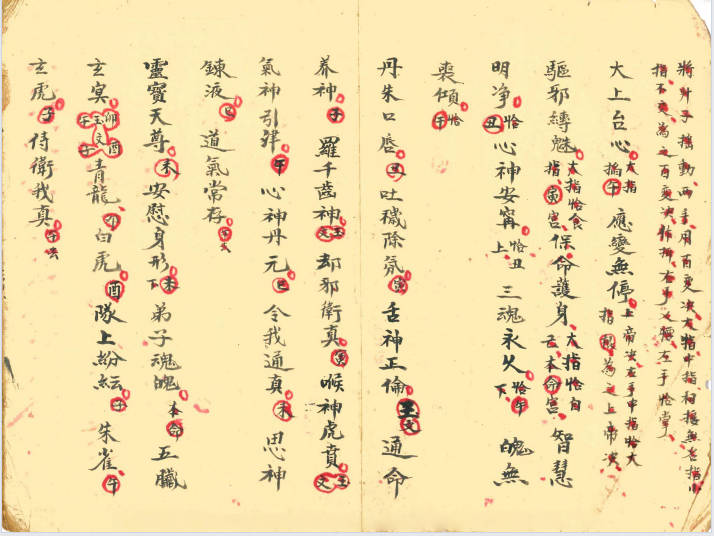 將升子搖動兩手用百變決大指中指相接無名指小
指不交為之百變決作揖右手必轉左手恰掌
大上台心大指掐午應變無停上帝決右手中指恰大指為之上帝決
驅邪縛魅大指恰食指寅宮保命護身大指恰自己本命宮智慧
明净恰丑心神安甯恰丑上三魂永久恰午下魄無
喪傾恰午
丹朱口唇丑吐穢除氛寅舌神正倫玉文通命
养神子羅千齒神玉文却邪衛真寅喉神虎賁玉文
氣神引肄午心神丹元巳令我通真未思神
鍊液巳道氣常存玉文
靈寶天尊未安慰身形未下弟子魂魄本命五臟
玄冥卯酉玉文午子青龍卯白虎酉隊上紛紜子朱雀午
玄虎子侍衛我真玉文